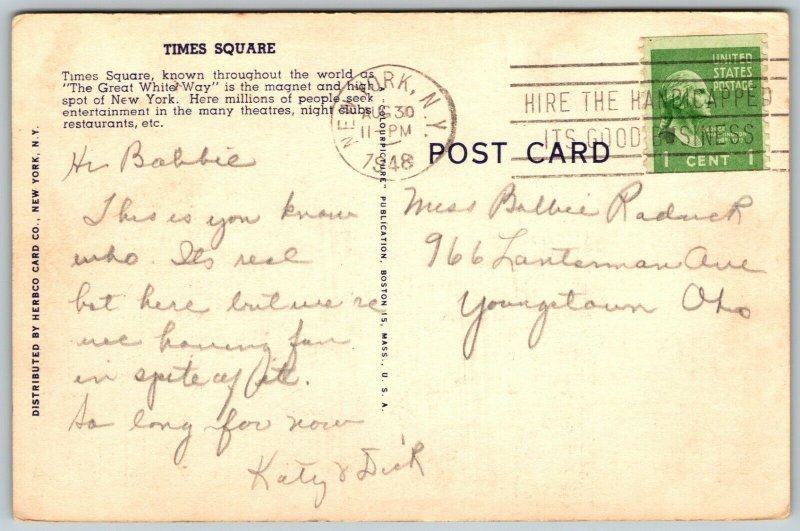 TIMES SQUARE
Times Square, known throughout the world as
"The Great White Way" is the magnet and high
spot of New York. Here millions of people seek
entertainment in the many theatres, night clubs,
restaurants, etc.
NEW YORK, N.Y.
AUG 30
11 - PM
1948
HIRE THE HANDICAPPED
ITS GOOD BUSINESS
UNITED
STATES
POSTAGE
1 CENT 1
POST CARD
DISTRIBUTED BY HERBCO CARD CO., NEW YORK, N.Y.
"COLOURPICTURE" PUBLICATION, BOSTON 15, MASS., U.S.A.
Hi Babbie
This is you know
who. Its real
hot here but we're
having fun
in spite of it.
So long for now
Katy & Dick
Miss Babbie Raduck
966 Lanterman Ave
Youngstown Ohio